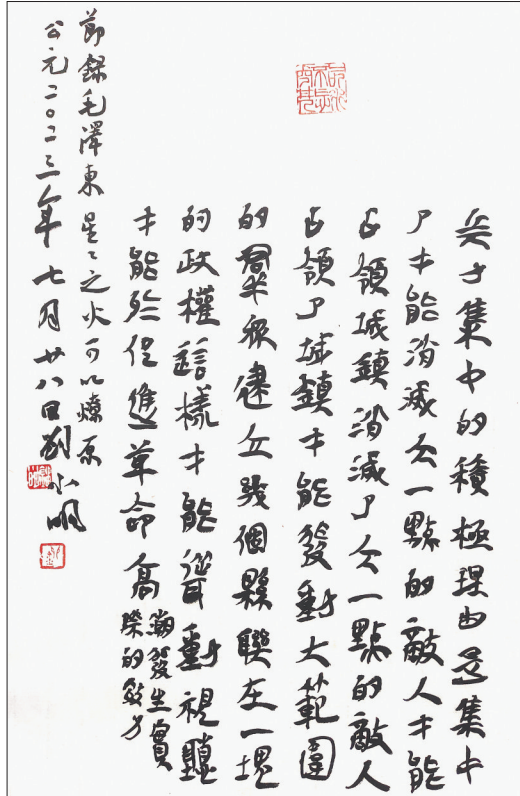 兵力集中的積極理由是集中
了才能消滅大一點的敵人才能
占領城鎮消滅了大一點的敵人
占領了城鎮才能發動大範圍
的羣衆建立幾個縣聯在一塊
的政權這樣才能聳動視聽
才能於促進革命高
潮發生實
際的效力
節錄毛澤東星〻之火可以燎原
公元二〇二三年七月廿八日劉小明